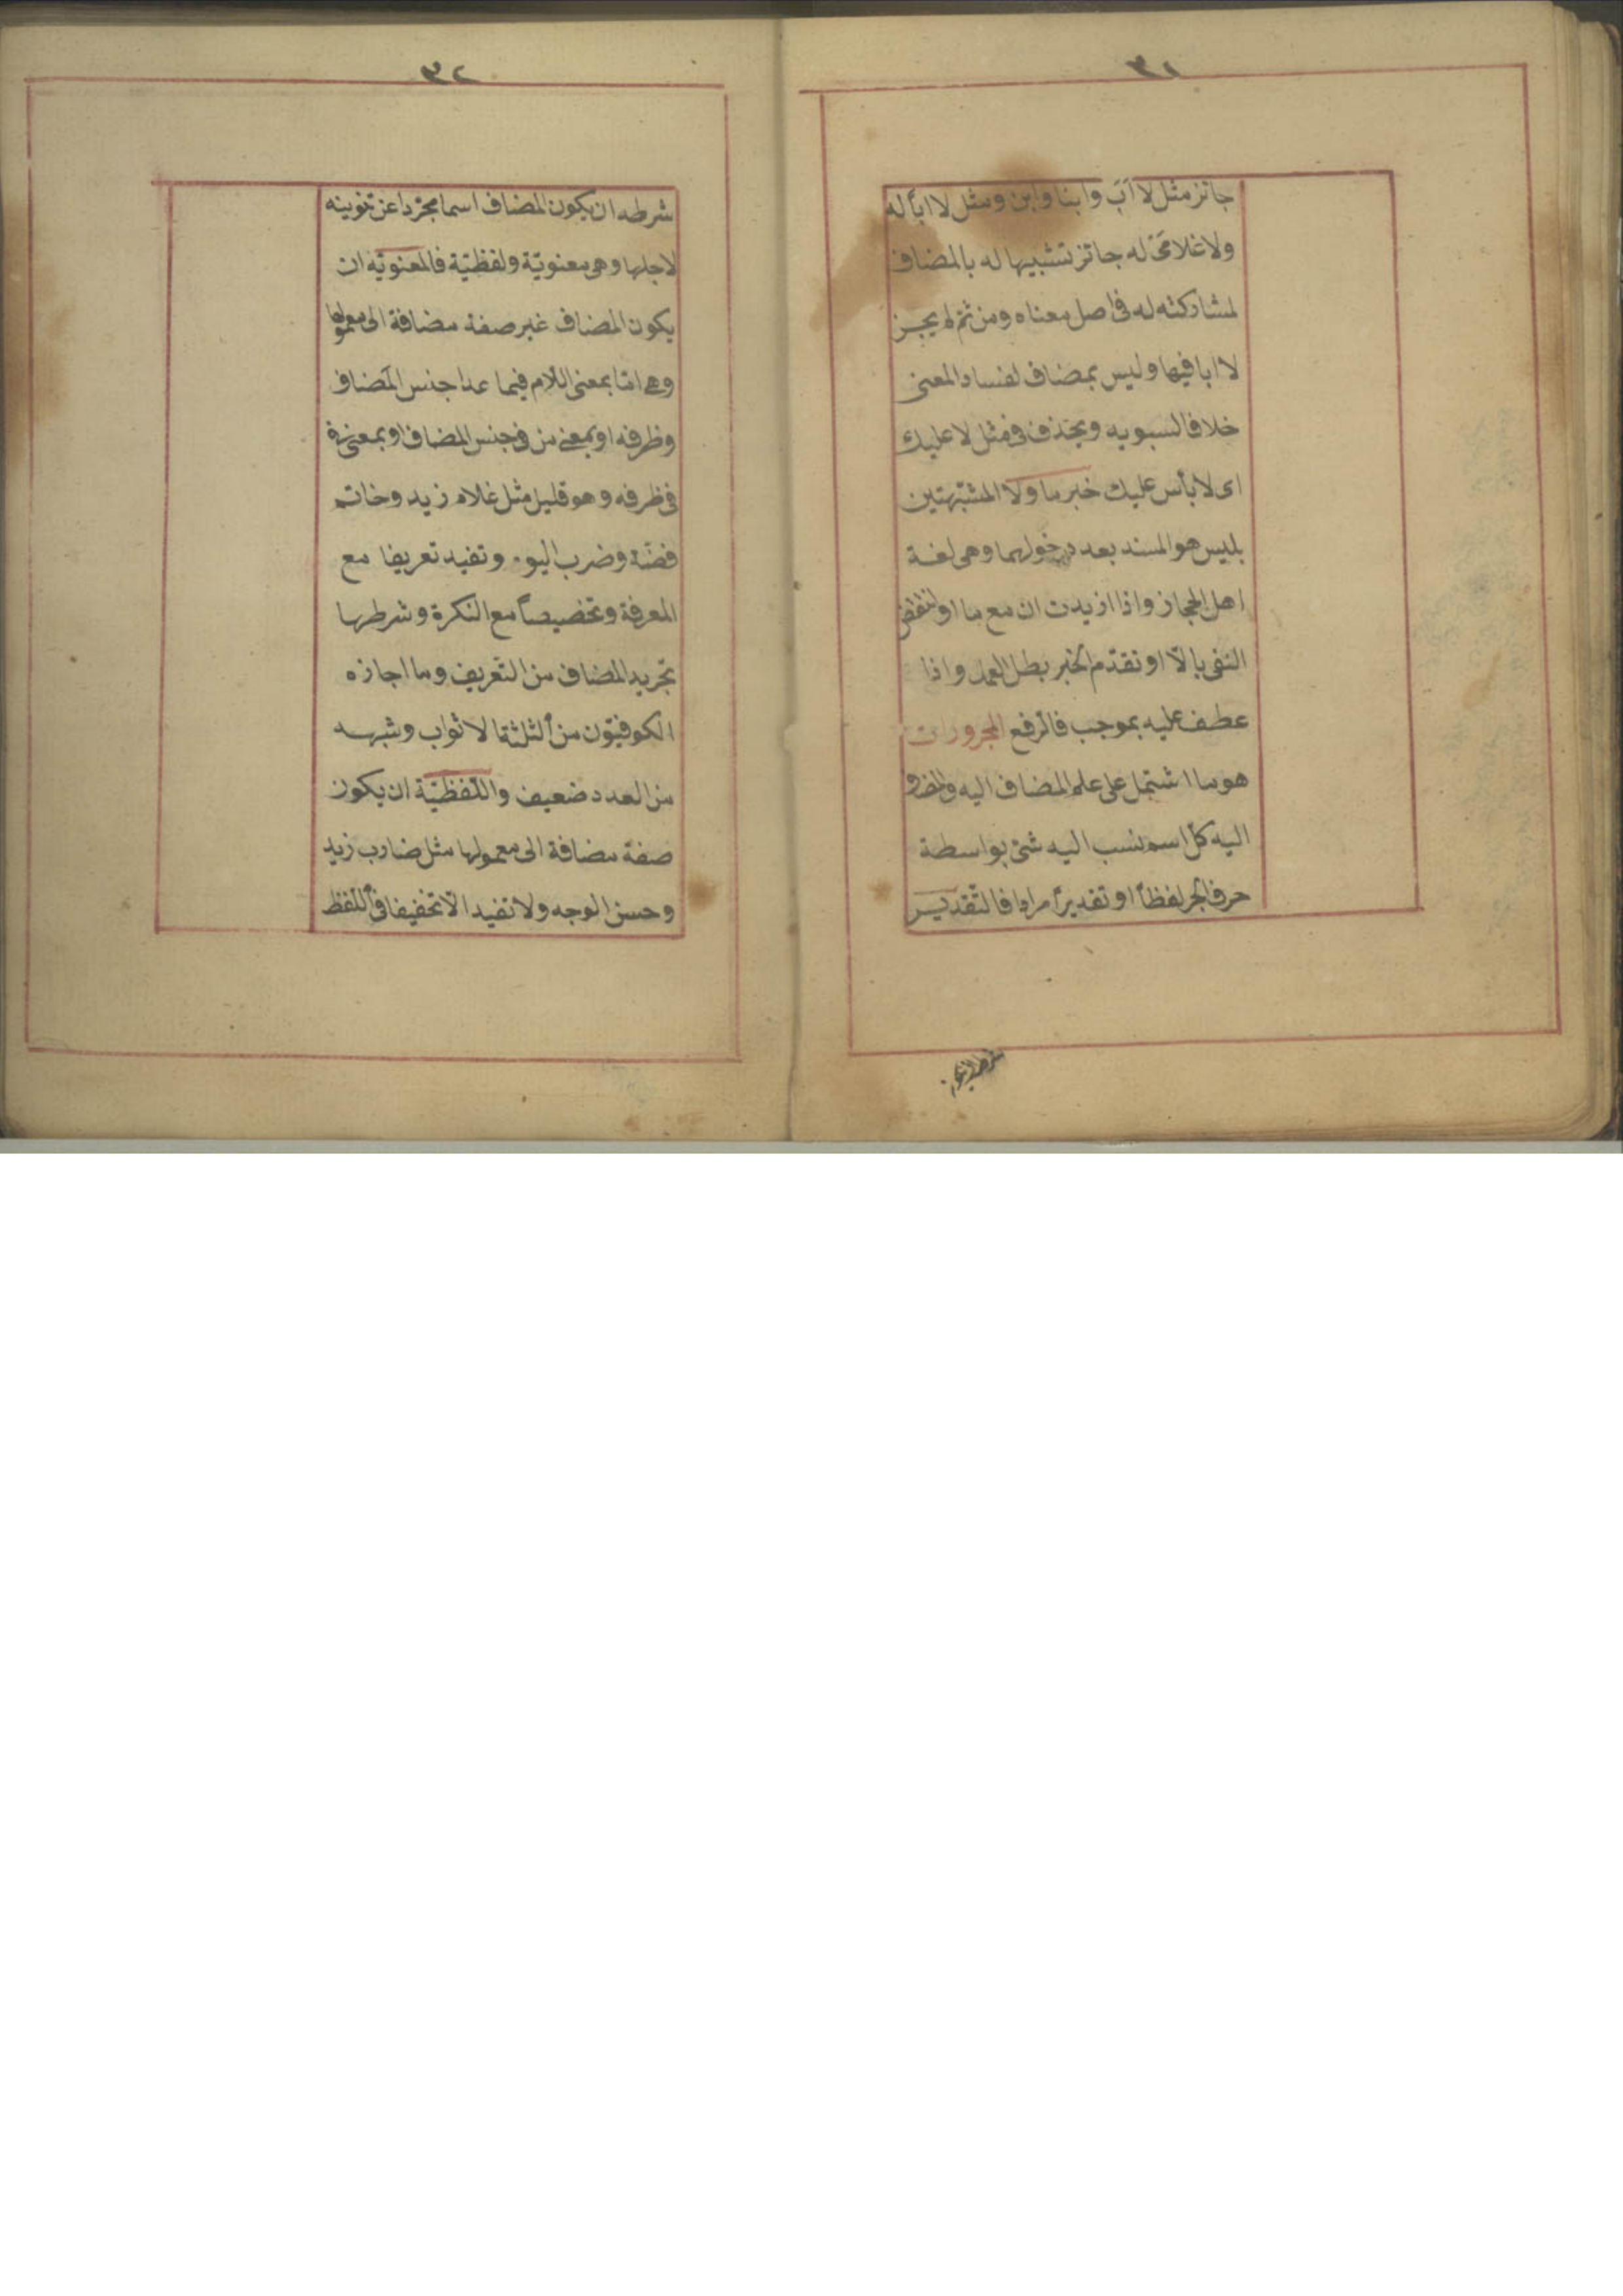 ٣١
جائز مثل لا اب وابنا وابن ومثل لا اباً له
ولا غلامَىْ له جائز تشبيها له بالمضاف
لمشاركته له فى اصل معناه ومن ثم لم يجز
لا ابا فيها وليس بمضاف لفساد المعنى
خلافا لسيبويه ويحذف فى مثل لا عليك
اى لا بأس عليك خبر ما ولا المشبّهتين
بليس هو المسند بعد دخولهما وهى لغة
اهل الحجاز واذا ازيدت ان مع ما او انتقض
النفى بالّا او تقدّم الخبر بطل العمل واذا
عطف عليه بموجب فالرفع المجرورات
هو ما اشتمل على علم المضاف اليه والمضاف
اليه كلّ اسم نسب اليه شئ بواسطة
حرف الجر لفظاً او تقديراً مرادا فالتّقدير
شرطه ان يكون
٣٢
شرطه ان يكون المضاف اسما مجرّدا عن تنوينه
لاجلها وهى معنويّة ولفظيّة فالمعنويّة ان
يكون المضاف غير صفة مضافة الى معمولها
وهى امّا بمعنى اللّام فيما عدا جنس المضاف
وظرفه او بمعنى من فى جنس المضاف او بمعنى فى
فى ظرفه وهو قليل مثل غلام زيد وخاتم
فضّة وضرب اليوم وتفيد تعريفا مع
المعرفة وتخصيصاً مع النكرة وشرطها
تجريد المضاف من التّعريف وما اجازه
الكوفيّون من الثلثة الاثواب وشبهه
من العدد ضعيف واللّفظيّة ان يكون
صفة مضافة الى معمولها مثل ضارب زيد
وحسن الوجه ولا تفيد الّا تخفيفا فى اللّفظ